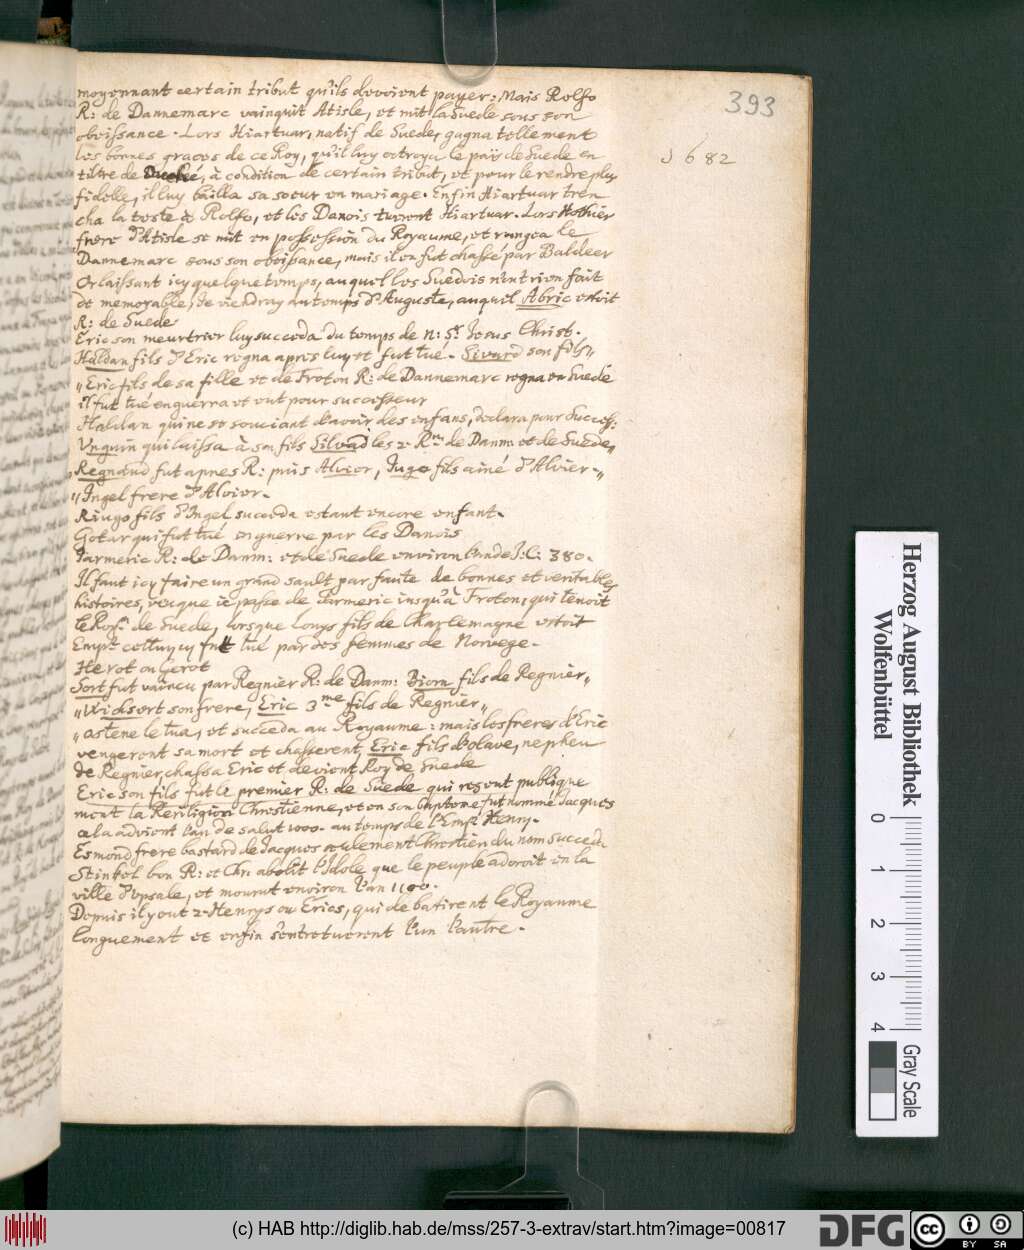 393
1682
moyennant certain tribut qu'ils devoient payer: Mais Rolfo
R: de Dannemarc vainquit Atisle, et mit la Suede sous son
obeissance. Lors Hiartuar, natif de Suede, gagna tellement
les bonnes graces de ce Roy, qu'il luy octroya le païs de Suede en
tiltre de Duché, à condition de certain tribut, et pour le rendre plus
fidelle, il luy bailla sa soeur en mariage. Enfin Hiartuar tren
cha la teste à Rolfo, et les Danois tuerent Hiartuar. Lors Hothier
frere d'Atisle se mit en possession du Royaume, et rangea le
Dannemarc sous son obeissance, mais il en fut chassé par Baldeer
Or laissant icy quelque temps, auquel les Suedois n'ont rien fait
de memorable, je viendray au temps d'Auguste, auquil Abric estoit
R: de Suede
Eric son meurtrier luy succeda du temps de N: Sr. Jesus Christ.
Haldan fils d'Eric regna apres luy et fut tué. Sivard son fils
Eric fils de sa fille et de Froton R: de Dannemarc regna en Suede
il fut tué en guerra et eut pour successeur
Haldan qui ne se souciant d'avoir des enfans, declara pour Success:
Unguin qui laissa à son fils Silvad les 2 Rmes de Danm: et de Suede
Regnaud fut apres R: puis Alvier, Jugo fils ainé d'Alvier
Ingel frere d'Alvier.
Ringo fils d'Ingel succeda estant encore enfant.
Gotar qui fut tué en guerre par les Danois
Jarmeric R: de Danm: et de Suede environ l'an de J: C: 380.
Il faut icy faire un grand sault par faute de bonnes et veritables
histoires, veu que ie passe de Jarmeric iusqu'à Froton, qui tenoit
le Roy.me de Suede, lorsque Louys fils de Charlemagne estoit
Emp.r celluy cy fut tué par des femmes de Norvege.
Herot ou Gerot
Sort fut vaincu par Regnier R: de Danm: Biorn fils de Regnier
Widsert son frere, Eric 3me fils de Regnier
Ostene le tua, et succeda au Royaume: mais les freres d'Eric
vengerent sa mort et chasserent Eric fils d'Olave, nepheu
de Regnier, chassa Eric et devient Roy de Suede
Eric son fils fut le premier R: de Suede qui reçeut publique
ment la Religion Chrestienne, et en son baptome fut nommé Jacques
cela advient l'an de salut 1000. au temps de l'Emp.r Henry.
Esmond frere bastard de Jacques seulement Chrestien du nom succeda
Stinkel bon R: et Chr: abolit l'Idole que le peuple adoroit en la
ville d'Upsale, et mourut environ l'an 1100.
Depuis il y eut 2 Henrys ou Erics, qui debatirent le Royaume
longuement et enfin s'entretuerent l'un l'autre.
Herzog August Bibliothek
Wolfenbüttel
0 1 2 3 4
Gray Scale
(c) HAB http://diglib.hab.de/mss/257-3-extrav/start.htm?image=00817
DFG
cc BY SA